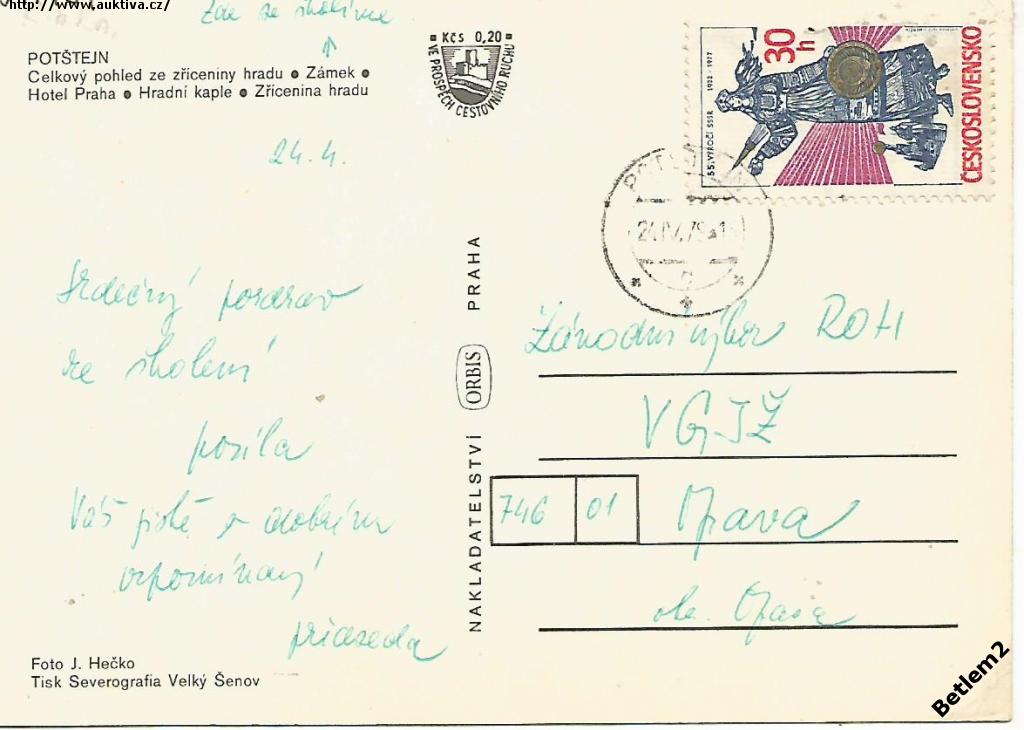 http://www.auktiva.cz/
Zde se školíme
POTŠTEJN
Celkový pohled ze zříceniny hradu • Zámek •
Hotel Praha • Hradní kaple • Zřícenina hradu
Kčs 0,20
VE PROSPĚCH CESTOVNÍHO RUCHU
55. VÝROČÍ SSSR 1922 - 1977
30 h
ČESKOSLOVENSKO
24.4.
24.IV.79
Srdečný pozdrav
ze školení
posílá
Váš jistě v dobrém
vzpomínaný
předseda
NAKLADATELSTVÍ ORBIS PRAHA
Závodní výbor ROH
VGJŽ
746 01 Opava
okr. Opava
Foto J. Hečko
Tisk Severografia Velký Šenov
Betlem2